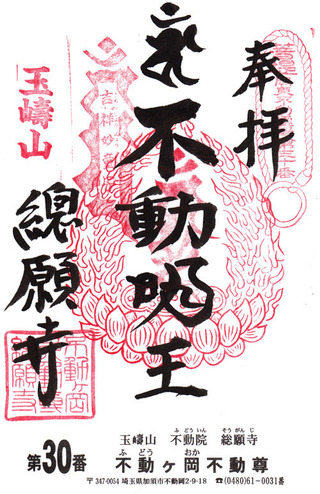 奉拝
不動明王
玉嶹山
總願寺
吉祥
不動ヶ岡
總願寺
玉嶹山 不動院 総願寺
ふどういん そうがんじ
第30番 不動ヶ岡不動尊
ふどう おか
〒347-0054 埼玉県加須市不動岡2-9-18 ☎(0480)61-0031㈹